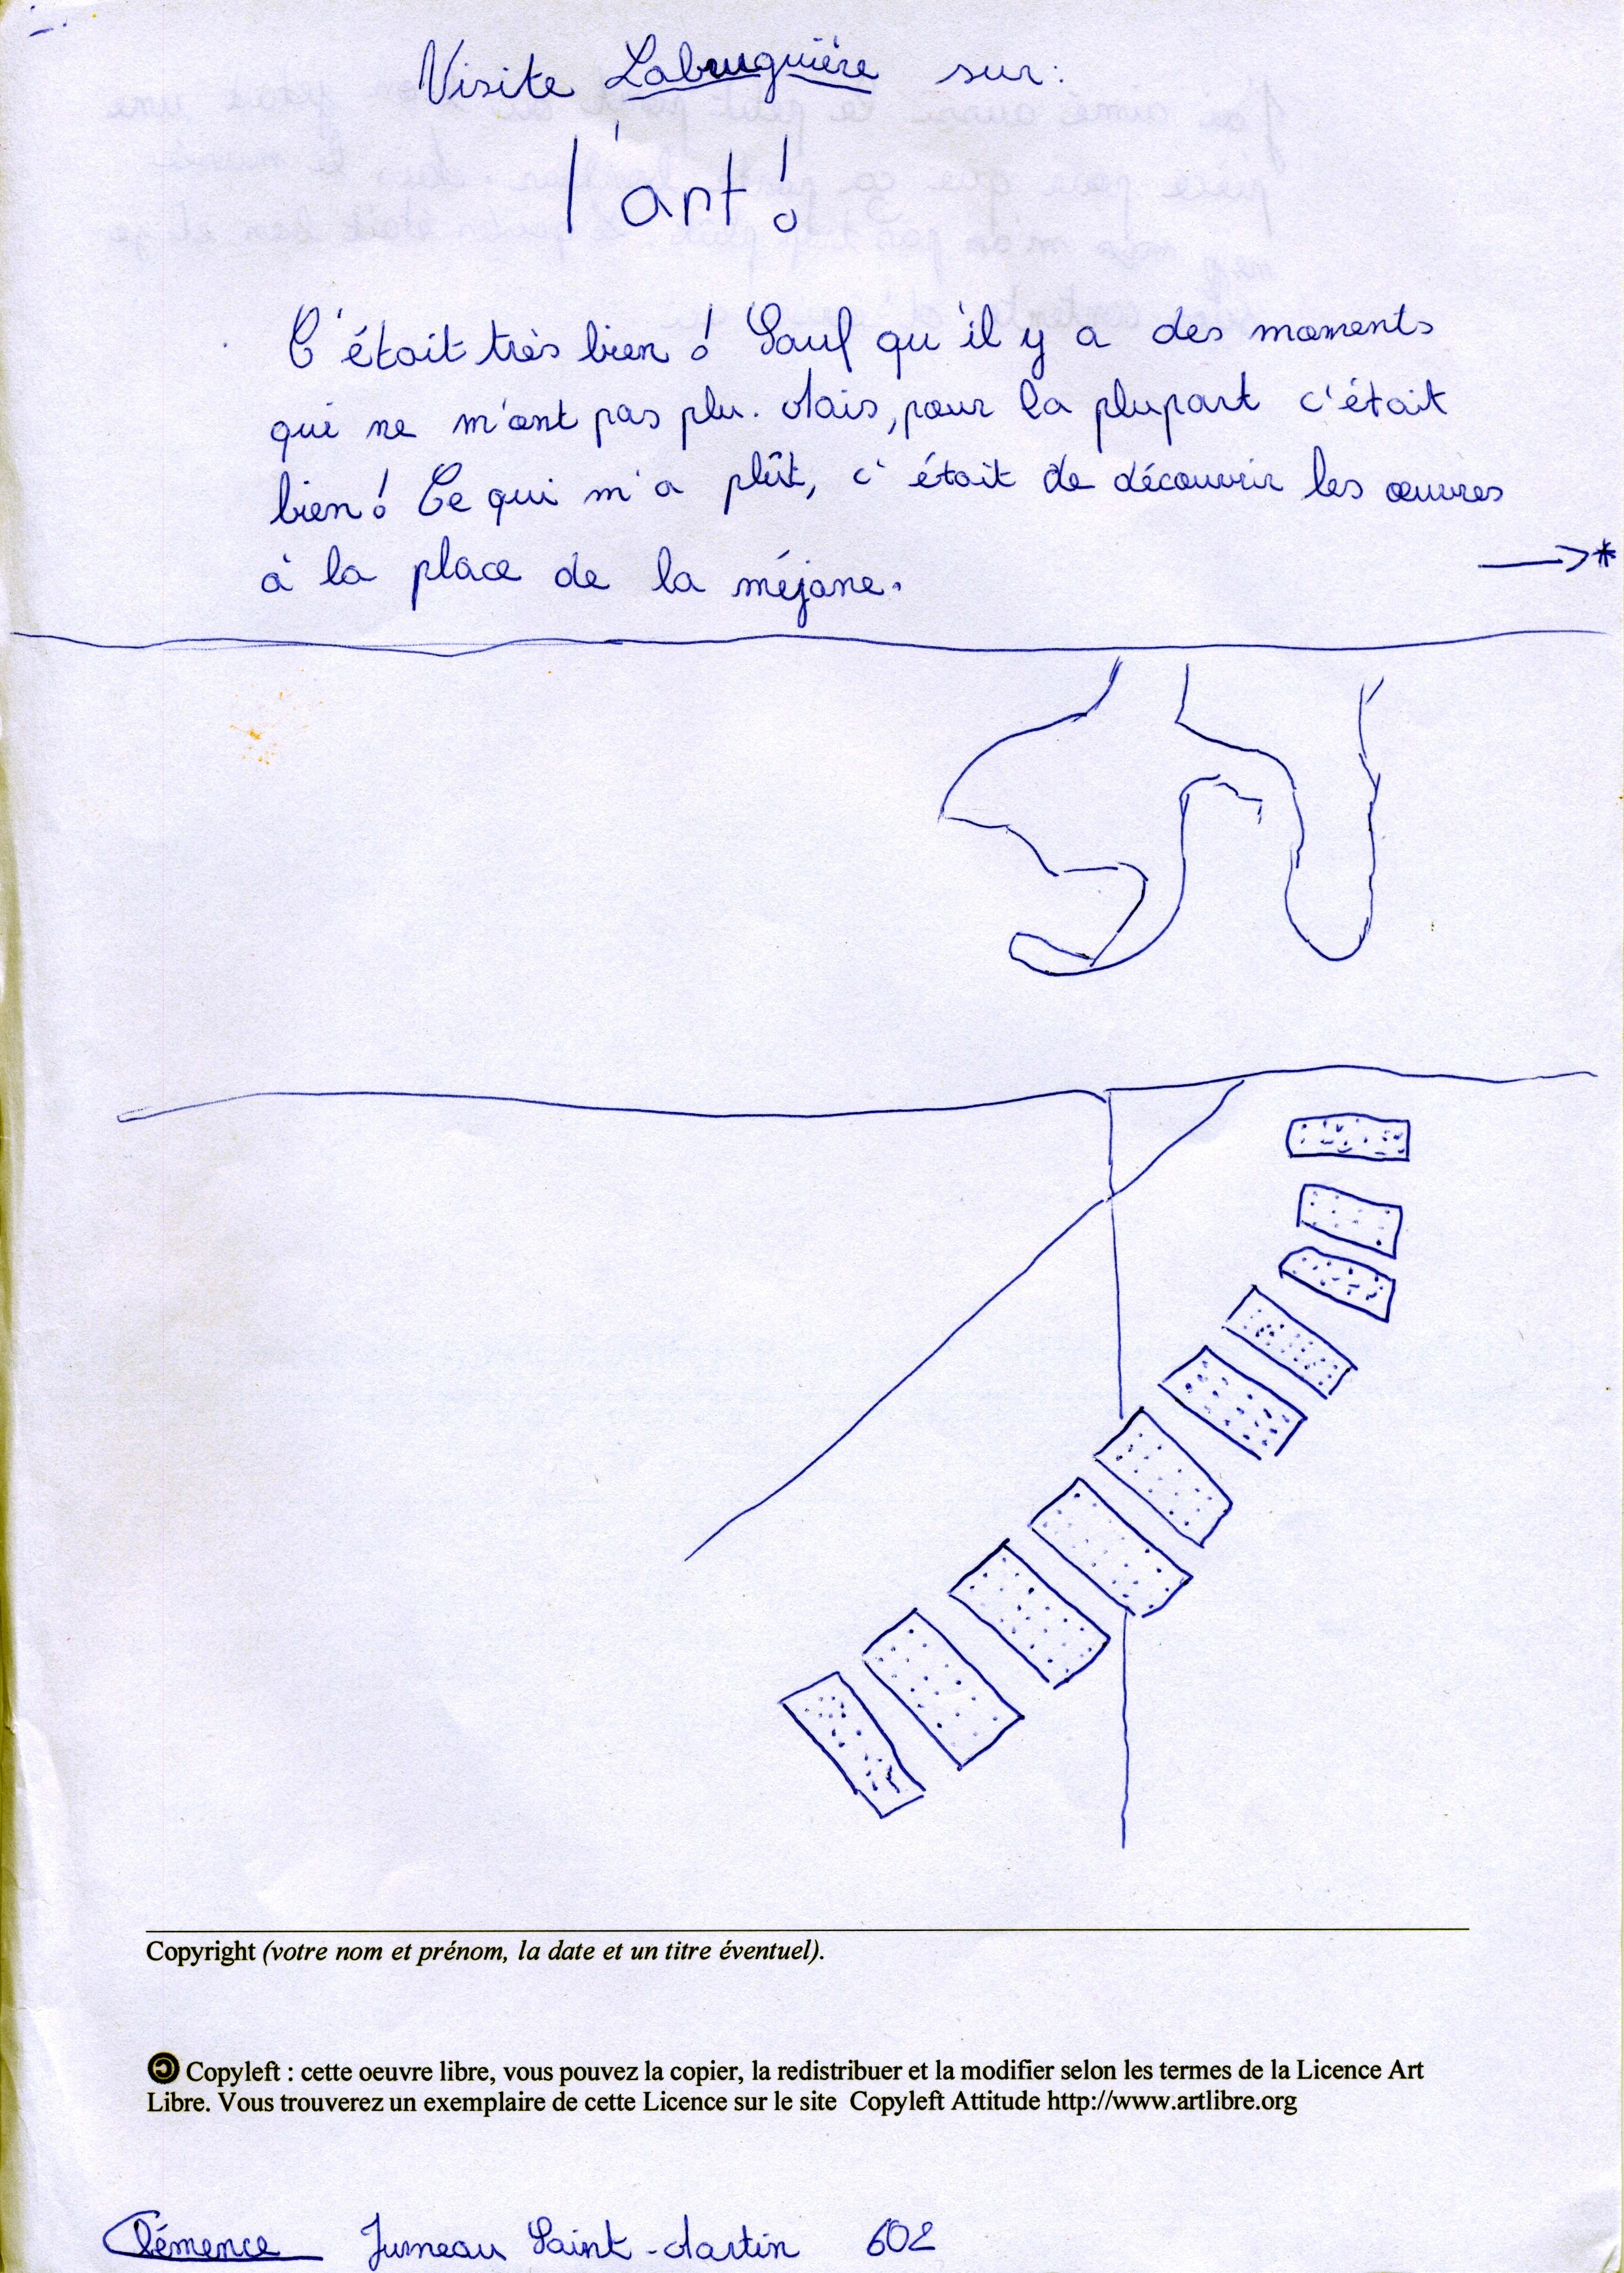 Visite Labruguière sur:
l'art!
C'était très bien! Sauf qu'il y a des moments
qui ne m'ont pas plu. Mais, pour la plupart c'était
bien! Ce qui m'a plût, c'était de découvrir les œuvres
à la place de la méjane. →*
Copyright (votre nom et prénom, la date et un titre éventuel).
Copyleft : cette oeuvre libre, vous pouvez la copier, la redistribuer et la modifier selon les termes de la Licence Art
Libre. Vous trouverez un exemplaire de cette Licence sur le site Copyleft Attitude http://www.artlibre.org
Clémence Jumeau Saint-Martin 602